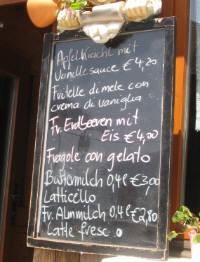 Apfelkiachl mit
Vanillesauce €4,20
Fritelle di mele con
crema di vaniglia
Fr. Erdbeeren mit
Eis €4,00
Fragole con gelato
Buttermilch 0,4l €3,00
Latticello
Fr. Almmilch 0,4l €2,80
Latte fresco